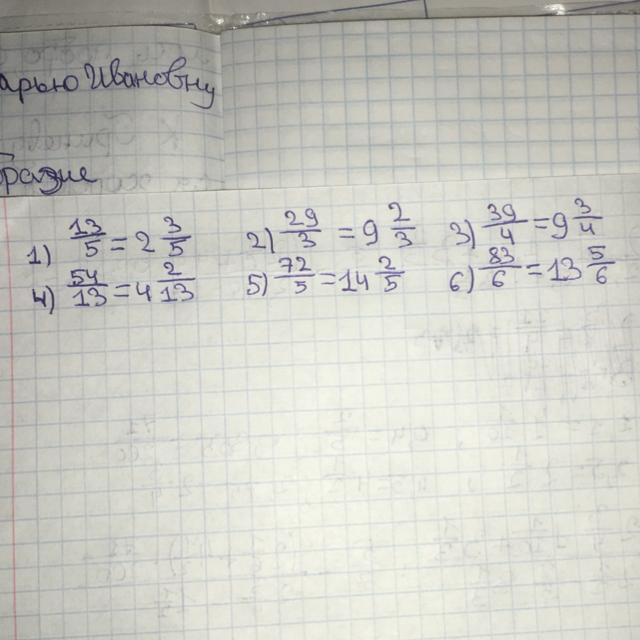 арью Ивановну
1) 13/5 = 2 3/5 2) 29/3 = 9 2/3 3) 39/4 = 9 3/4
4) 54/13 = 4 2/13 5) 72/5 = 14 2/5 6) 83/6 = 13 5/6